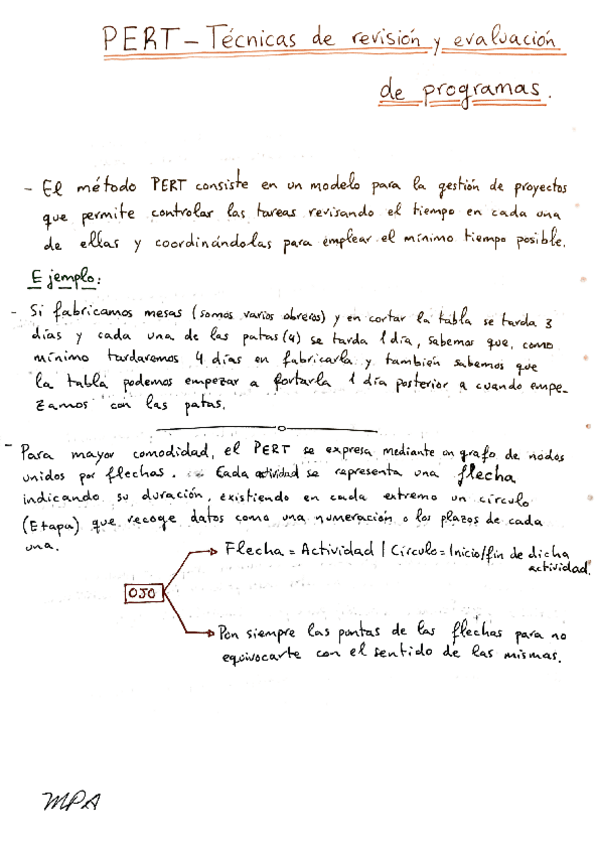 PERT – Técnicas de revisión y evaluación
de programas.
- El método PERT consiste en un modelo para la gestión de proyectos
que permite controlar las tareas revisando el tiempo en cada una
de ellas y coordinándolas para emplear el mínimo tiempo posible.
Ejemplo:
- Si fabricamos mesas (somos varios obreros) y en cortar la tabla se tarda 3
días y cada una de las patas (4) se tarda 1 día, sabemos que, como
mínimo tardaremos 4 días en fabricarla y también sabemos que
la tabla podemos empezar a cortarla 1 día posterior a cuando empe-
zamos con las patas.
- Para mayor comodidad, el PERT se expresa mediante un grafo de nodos
unidos por flechas. Cada actividad se representa una flecha
indicando su duración, existiendo en cada extremo un círculo
(Etapa) que recoge datos como una numeración o los plazos de cada
una.
Flecha = Actividad | Círculo = Inicio/fin de dicha
actividad.
OJO
Pon siempre las puntas de las flechas para no
equivocarte con el sentido de las mismas.
MPA